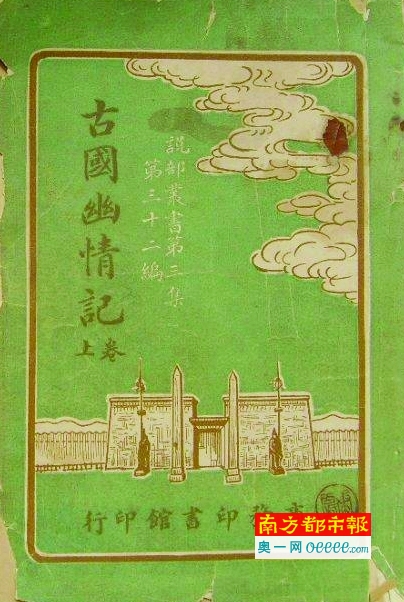 說部叢書第三集
第三十二編
古國幽情記
上卷
商務印書館印行
南方都市報
奥一网 oeeee.com